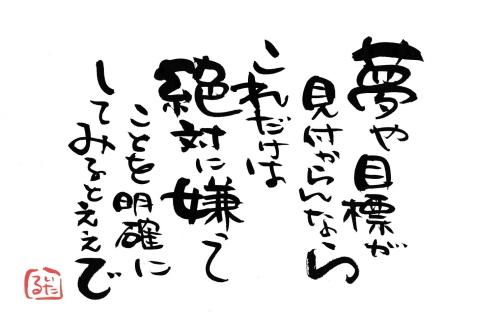 夢や目標が
見付からんなら
これだけは
絶対に嫌って
ことを明確に
してみるとええで